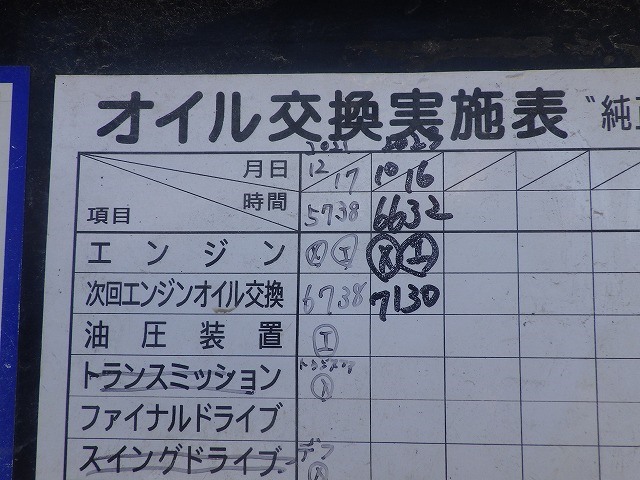 オイル交換実施表 〝純正
月日 12/17 10/16
項目 時間 5738 6632
エンジン Ⓧ Ⓘ Ⓧ Ⓘ
次回エンジンオイル交換 6738 7130
油圧装置 エ
トランスミッション
ファイナルドライブ
スイングドライブ デフ